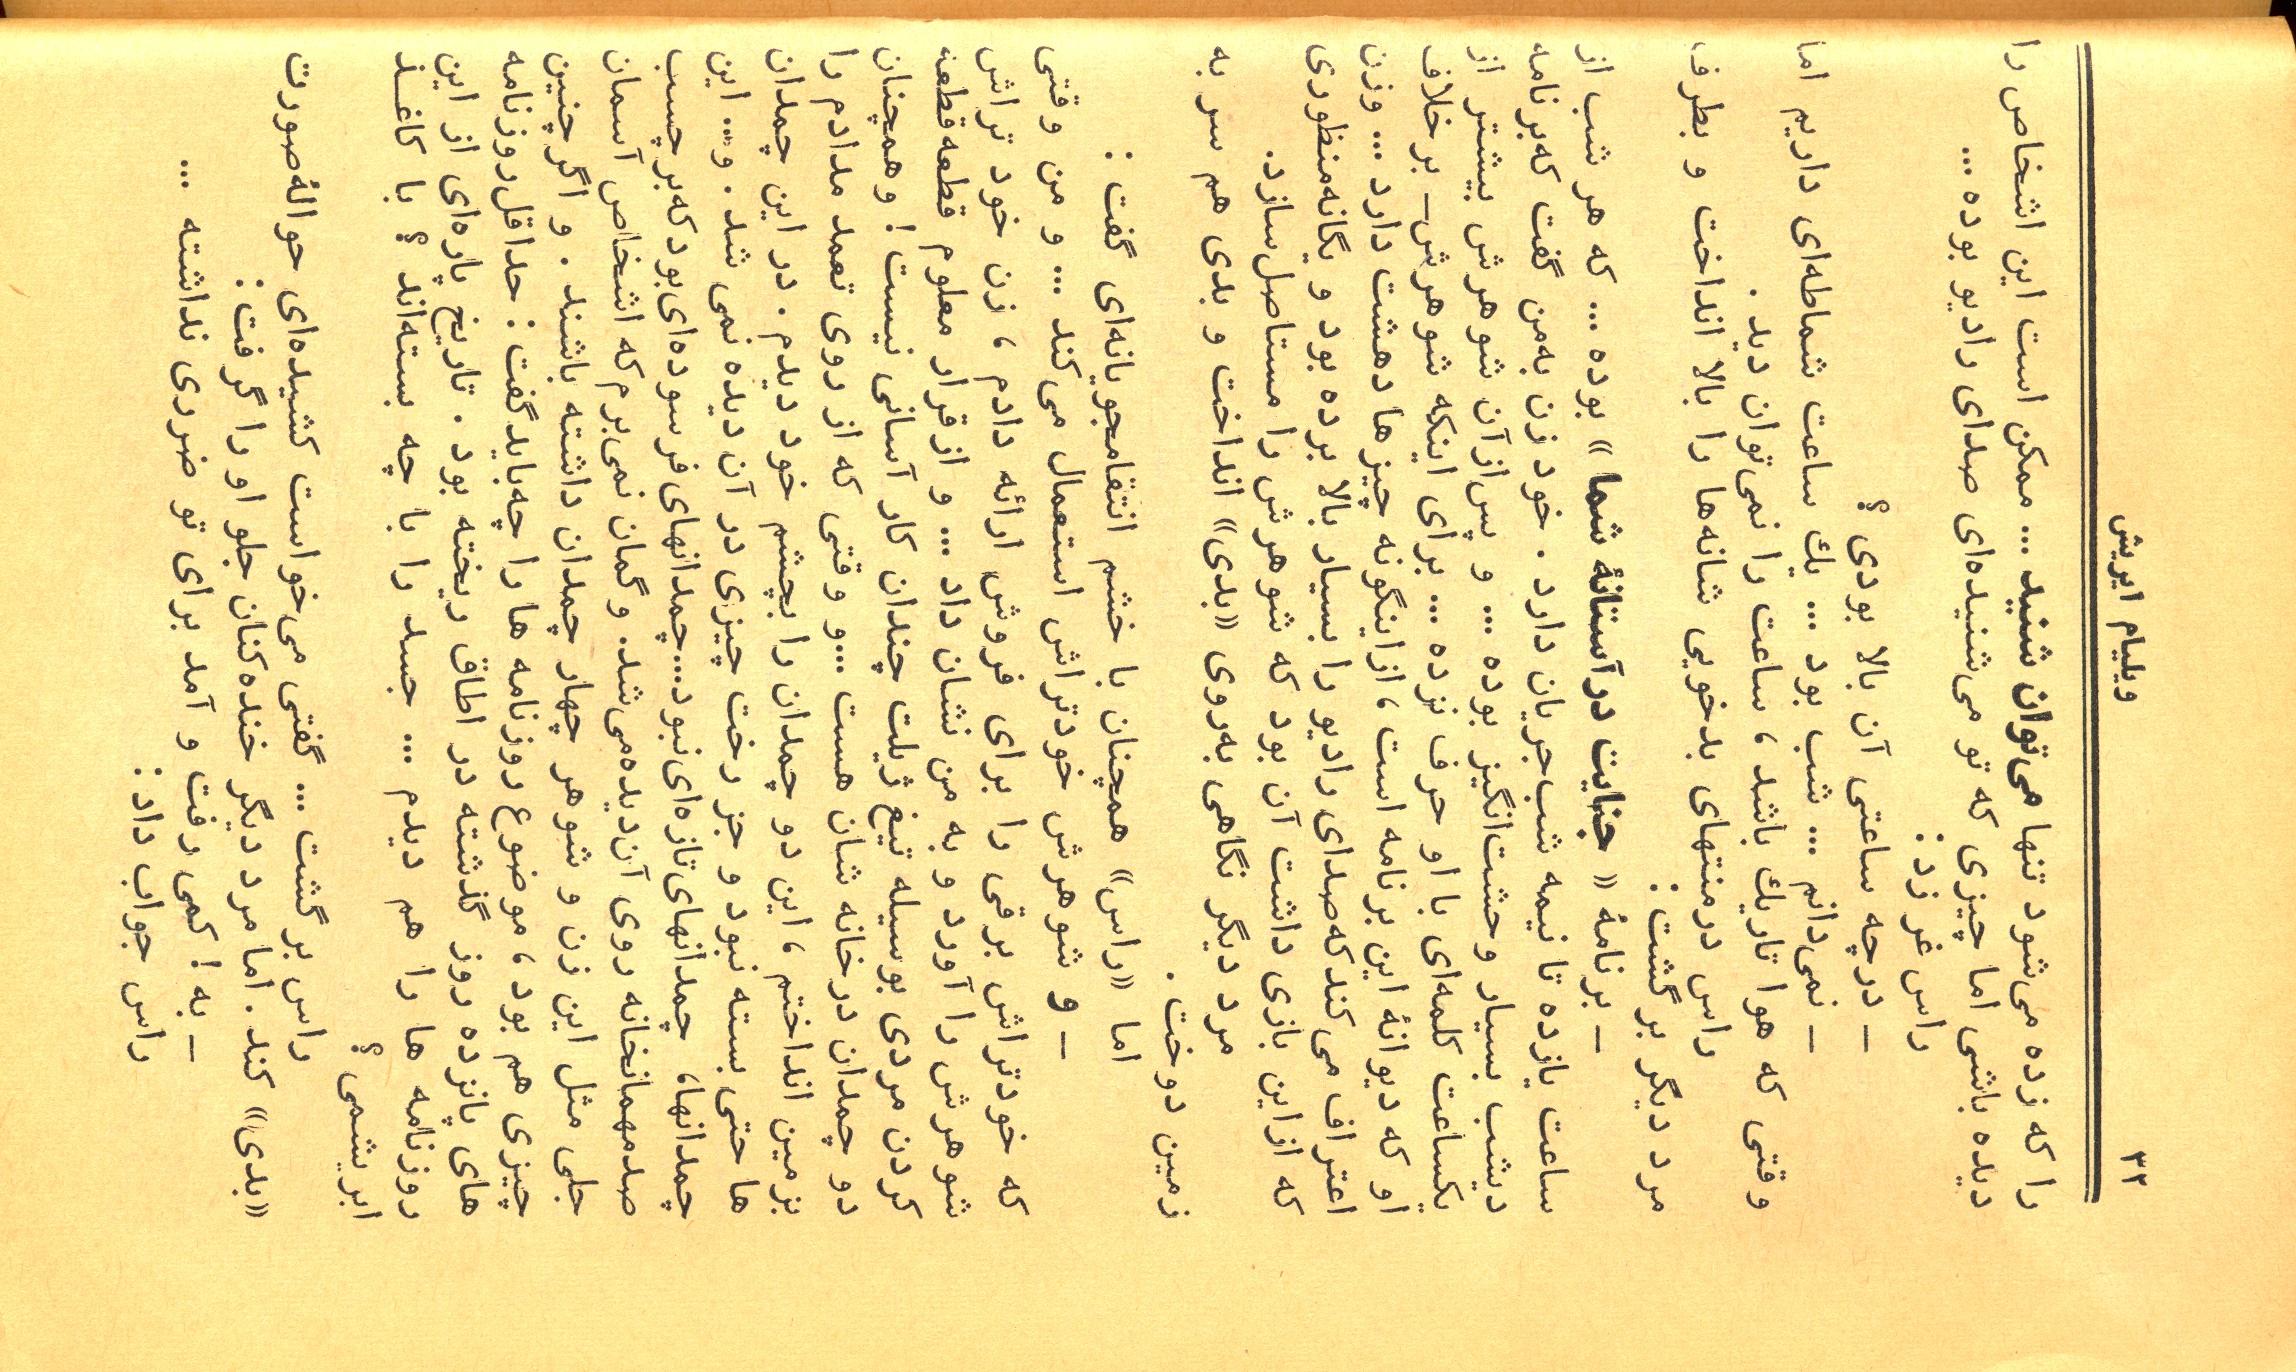 ۳۲
ویلیام ایریش
را که زده می‌شود تنها می‌توان شنید ... ممکن است این اشخاص را
دیده باشی اما چیزی که تو می‌شنیده‌ای صدای رادیو بوده ...
راس غرزد :
— درچه ساعتی آن بالا بودی ؟
— نمی‌دانم ... شب بود ... یك ساعت شماطه‌ای داریم اما
وقتی که هوا تاریك باشد ، ساعت را نمی‌توان دید .
راس درمنتهای بدخویی شانه‌ها را بالا انداخت و بطرف
مرد دیگر برگشت :
— برنامۀ « جنایت درآستانۀ شما » بوده ... که هر شب از
ساعت یازده تا نیمه شب‌جریان دارد . خود زن به‌من گفت که‌برنامه
دیشب بسیار وحشت‌انگیز بوده ... و پس‌ازآن شوهرش بیشتر از
یکساعت کلمه‌ای با او حرف نزده ... برای اینکه شوهرش— برخلاف
او که دیوانۀ این برنامه است ، ازاینگونه چیزها دهشت دارد ... وزن
اعتراف می‌کند که‌صدای رادیو را بسیار بالا برده بود و یگانه‌منظوری
که ازاین بازی داشت آن بود که شوهرش را مستاصل‌سازد.
مرد دیگر نگاهی به‌روی «بدی» انداخت و بدی هم سر به
زمین دوخت .
اما «راس» همچنان با خشم انتقامجویانه‌ای گفت :
— و شوهرش خودتراش استعمال می‌کند ... و من وقتی
که خودتراش برقی را برای فروش ارائه دادم ، زن خود تراش
شوهرش را آورد و به من نشان داد ... و ازقرار معلوم قطعه‌قطعه
کردن مردی بوسیله تیغ ژیلت چندان کار آسانی نیست ! وهمچنان
دو چمدان درخانه شان هست ...و وقتی که از روی تعمد مدادم را
بزمین انداختم ، این دو چمدان را بچشم خود دیدم . در این چمدان
ها حتی بسته نبود و جز رخت چیزی در آن دیده نمی شد . و... این
چمدانها، چمدانهای‌تازه‌ای‌نبود...چمدانهای‌فرسوده‌ای‌بود که‌برچسب
صدمهمانخانه روی آن‌دیده‌می‌شد. وگمان نمی‌برم که اشخاص آسمان
جلی مثل این زن و شوهر چهار چمدان داشته باشند . و اگر چنین
چیزی هم بود، موضوع روزنامه ها را چه‌بایدگفت : حداقل‌روزنامه
های پانزده روز گذشته در اطاق ریخته بود . تاریخ پاره‌ای از این
روزنامه ها را هم دیدم ... جسد را با چه بسته‌اند ؟ با کاغذ
ابریشمی ؟
راس برگشت ... گفتی می‌خواست کشیده‌ای حوالۀ‌صورت
«بدی» کند . اما مرد دیگر خنده‌کنان جلو او را گرفت :
— به ! کمی رفت و آمد برای تو ضرری نداشته ...
راس جواب داد :